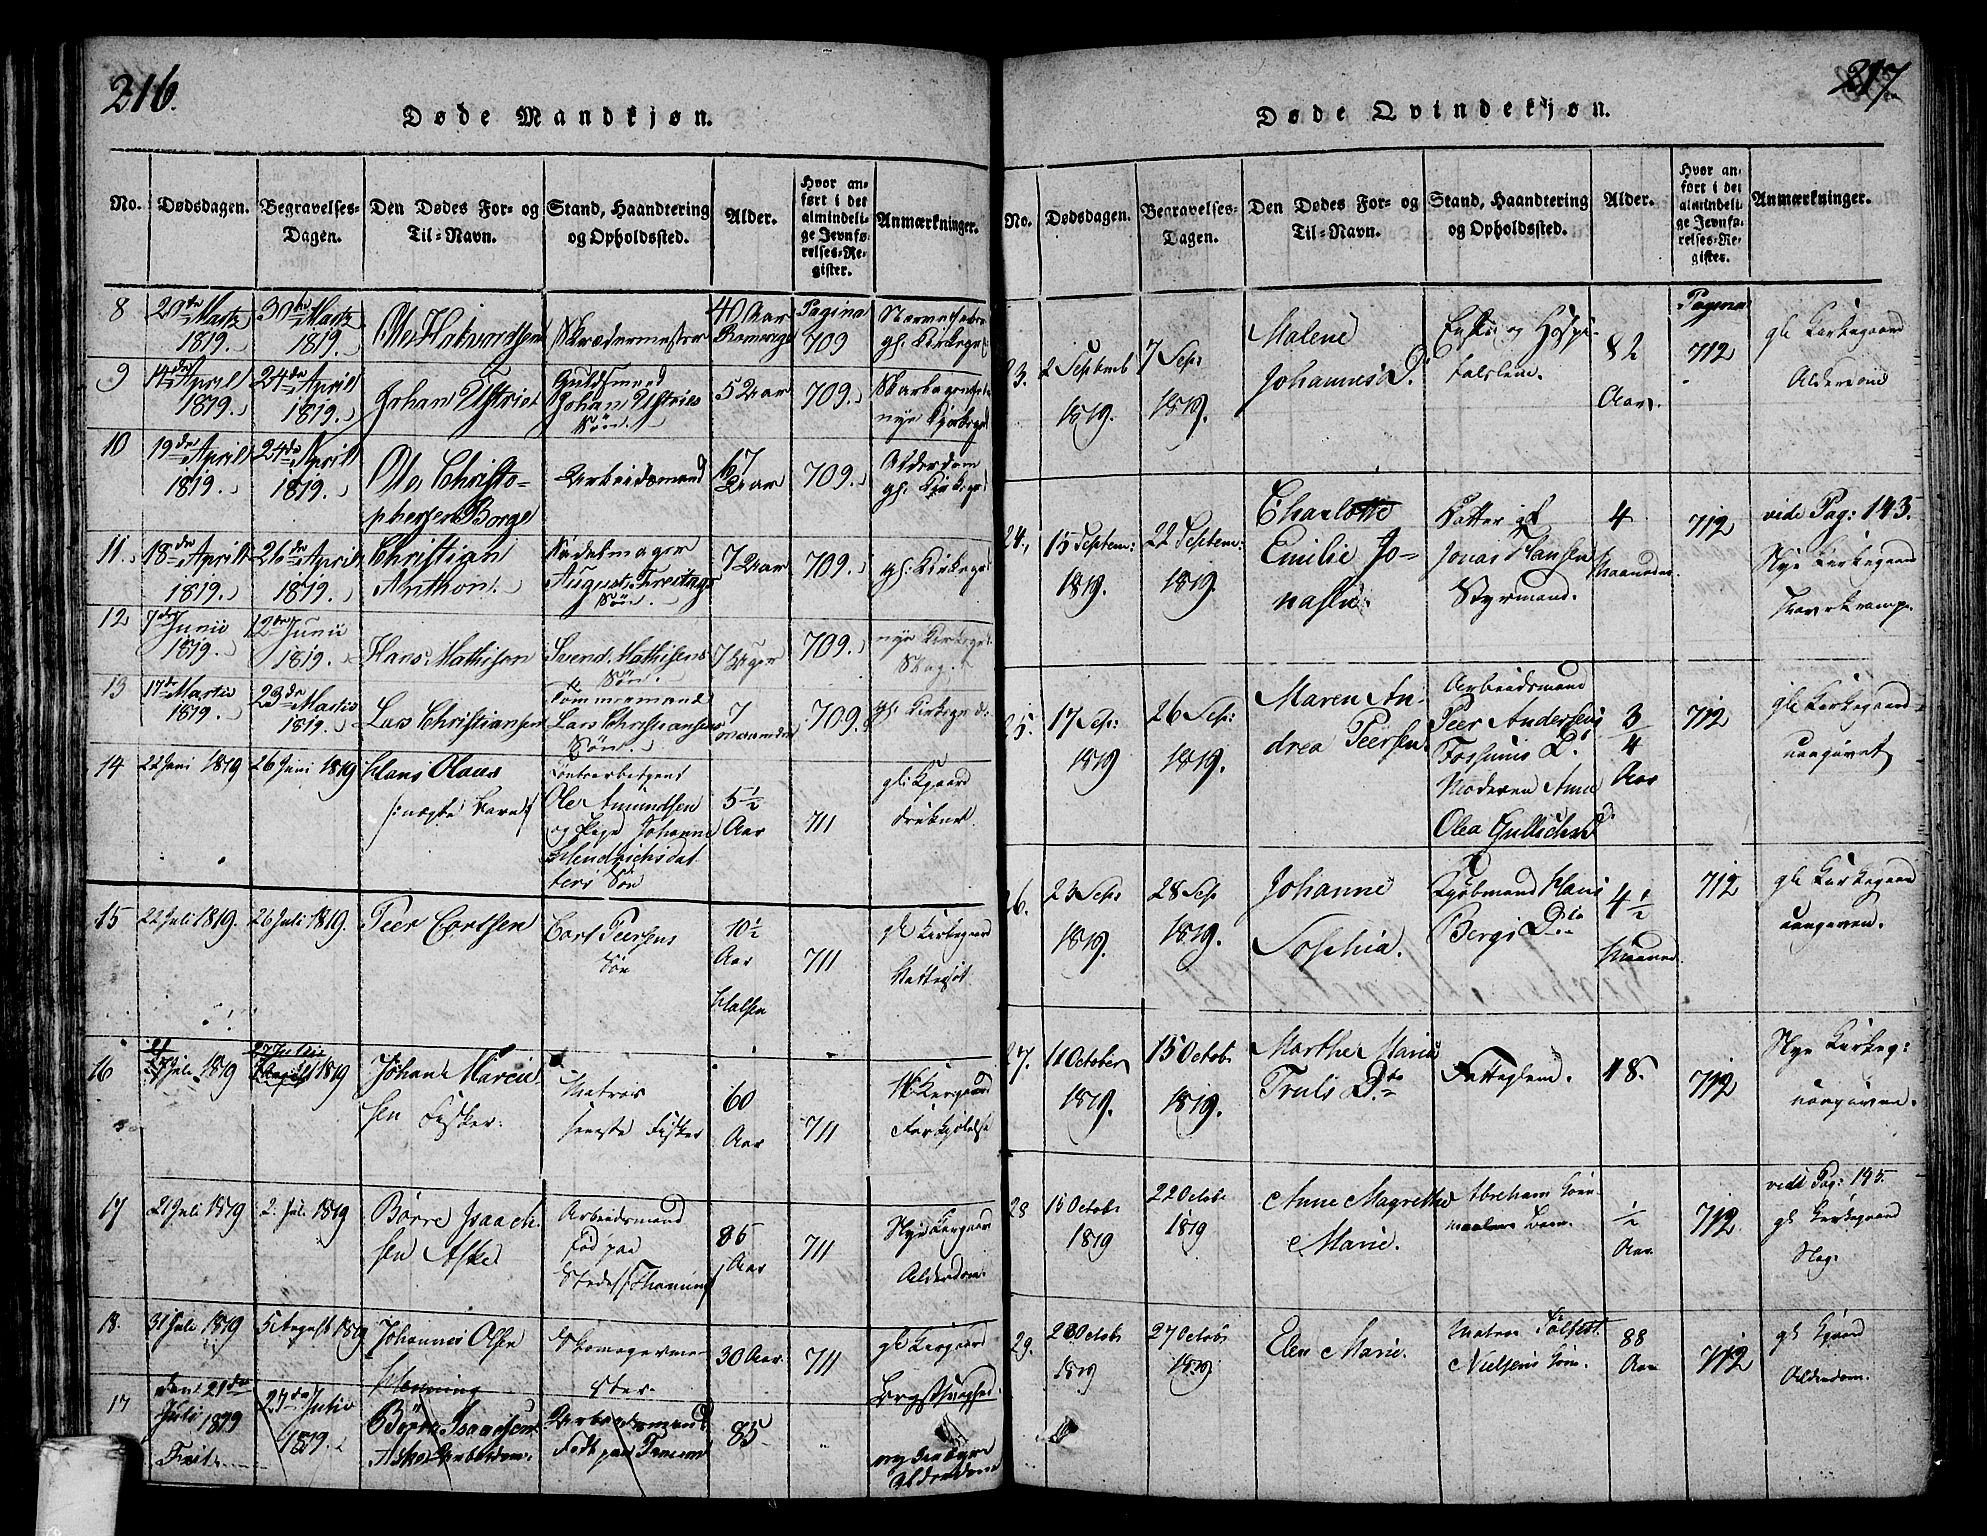 216.
Døde Mandkjøn.
No. Dødsdagen. Begravelses-Dagen. Den Dødes For- og Til-Navn. Stand, Haandtering og Opholdssted. Alder. Hvor anført i det almindelige Jevnførelses-Register. Anmærkninger.
8 20de Martz 1819. 30te Martz 1819. Ole Hakvordsen Skrædermester 40 Aar Pagina 709 gl: Kirkegrd
9 14de April 1819. 24de April 1819. Johan Ustriet Guldsmed Johan Ustries Søn. 5 Aar 709. nye Kirkegrd
10 19de April 1819. 24de April 1819. Ole Christophersen Borge Arbeidsmand 67 Aar 709. Alderdom gl. Kirkegrd
11. 18de April 1819. 26de April 1819. Christian Anthon. Sadelmager August Freitags Søn. 7 Aar 709. gl: Kirkegrd
12 7de Junii 1819. 12te Junii 1819. Hans Mathison Svend Mathisens Søn. 7 Uger 709. nye Kirkegrd Slag.
13 17de Martii 1819. 23de Martii 1819. Lars Christiansen Tømmermand Lars Christiansens Søn. 7 Maaneder 709. gl. Kirkegrd
14 22 Juni 1819 26 Juni 1819 Hans Olaus /:uægte Barn:/ Ole Amundsen og Pige Johanne Hendrichsdatters Søn 5½ Aar 711 gl: Kgaard druknet
15 22 Juli 1819. 26 Juli 1819. Peer Cortsen Cort Peersens Søn 10½ Aar 711 gl Kirkegaard Vattersot
16 Juli 1819 27 Julii 1819 Johan Marcussen Fisker. Matros Fisker 60 Aar 711 Kirkegaard Forkjølelse
17 21 Juli 1819 2. Juli 1819 Børre Isaachsen Aske Arbeidsmand Fød paa Stedet 86 Aar 711 Nye Kirgaar Alderdom.
18. 31 Juli 1819 5 August 1819 Johannes Olsen Henning Skomagermester 30 Aar. 711 gl. Kirgaard Brystsvaghed.
17 Den 21de Julii 1819 27de Julii 1819. Børre Isaachsen Aske Arbeidsmand Født paa 85 Alderdom
217
Døde Qvindekjøn.
No. Dødsdagen. Begravelses-Dagen. Den Dødes For- og Til-Navn. Stand, Haandtering og Opholdssted. Alder. Hvor anført i det almindelige Jevnførelses-Register. Anmærkninger.
23. 2 Septemb 1819. 7 Sep: 1819. Malene Johannes D. Enke og Hospitalslem. 82 Aar. Pagina 712 gle Kirkegaard Alderdom
24. 15 Septem: 1819. 22 Septem: 1819. Charlotte Emilie Jonasen. Datter af Jonas Hansen Styrmand. 4 Maaneder. 712 vide Pag: 143. Nye Kirkegaard
25. 17 Sep: 1819 26 Sep: 1819. Maren Andrea Peersen. Arbeidsmand Peer Andersens Fossums D. Moderen Anne Olea Gullichsd 3/4 Aar 712 gle Kirkegaard uangivet
26. 23 Sep: 1819. 28 Sep 1819. Johanne Sophia. Kjøbmand Hans Bergs D. 4½ Maaned. 712 gle Kirkegaard uangiven.
27. 11 October 1819. 15 Octob: 1819. Marthe Maria Truls D. Fatteglem. 48. 712 Nye Kirkeg: uangiven.
28 15 Octob: 1819 22 Octob: 1819 Anne Magrethe Marie. Abraham ½ Aar 712. vide Pag: 145. gle Kirkegaard Slag.
29. 20 Octob: 1819 27 Octob: 1819. Elen Marie. Matros Nielsens 88 Aar 712 gl. Kgaard Alderdom.